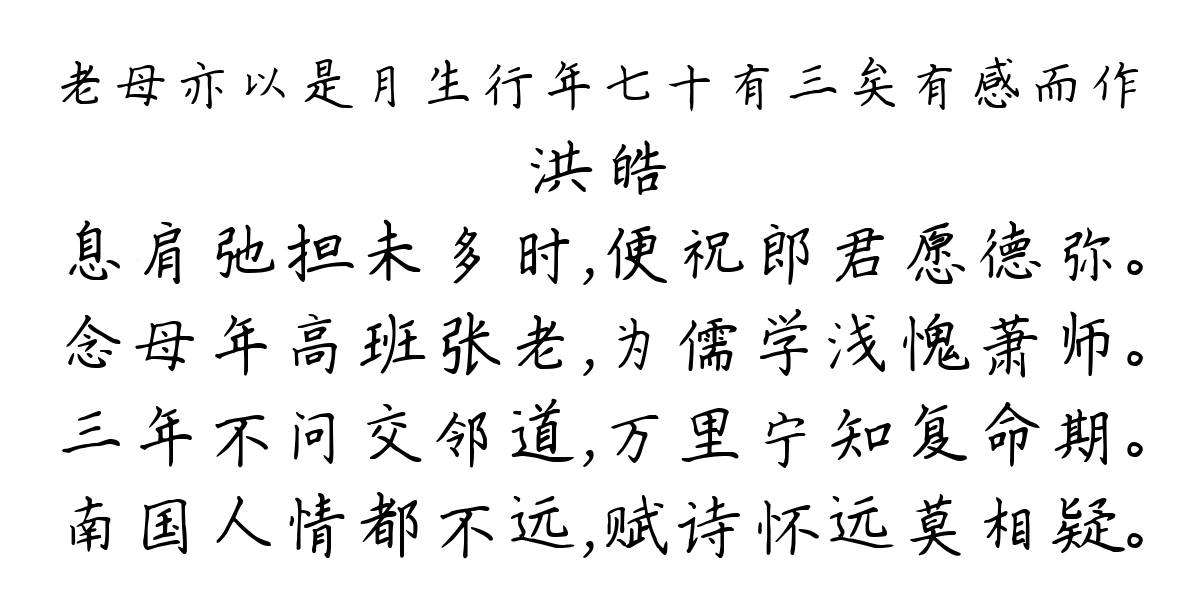 老母亦以是月生行年七十有三矣有感而作
洪皓
息肩弛担未多时,便祝郎君愿德弥。
念母年高班张老,为儒学浅愧萧师。
三年不问交邻道,万里宁知复命期。
南国人情都不远,赋诗怀远莫相疑。